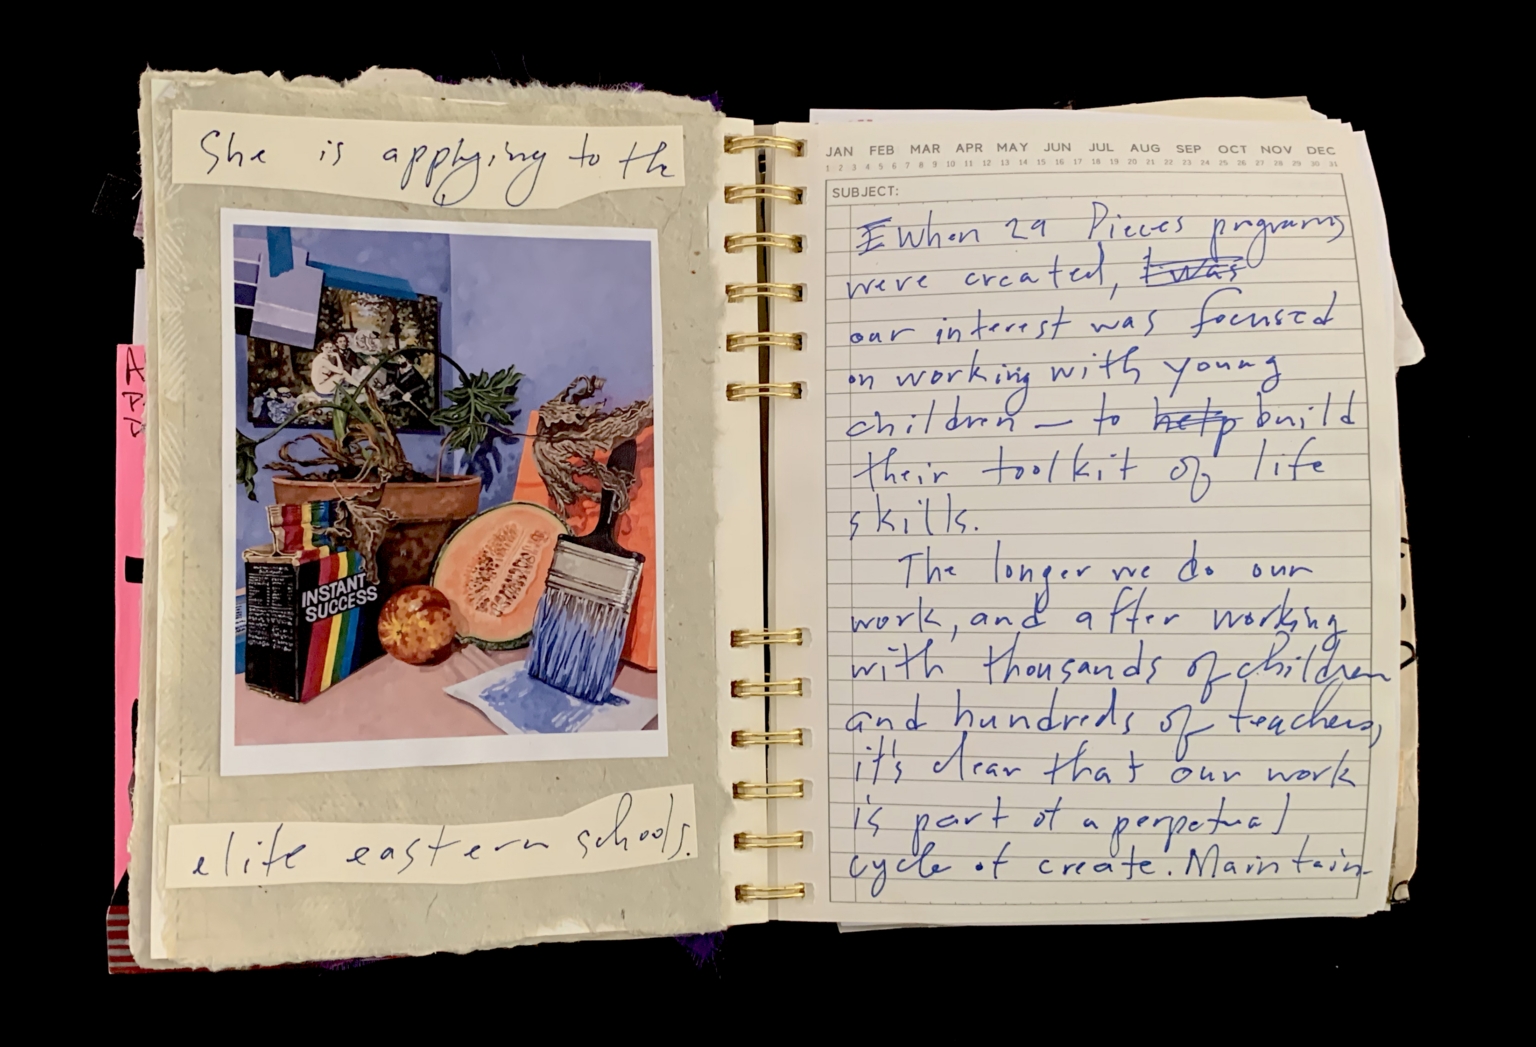 She is applying to the
INSTANT
SUCCESS
elite eastern schools.
JAN FEB MAR APR MAY JUN JUL AUG SEP OCT NOV DEC
1 2 3 4 5 6 7 8 9 10 11 12 13 14 15 16 17 18 19 20 21 22 23 24 25 26 27 28 29 30 31
SUBJECT:
I When 29 Pieces programs
were created, I was
our interest was focused
on working with young
children — to help build
their toolkit of life
skills.
The longer we do our
work, and after working
with thousands of children
and hundreds of teachers,
it's clear that our work
is part of a perpetual
cycle of create. Maintain.